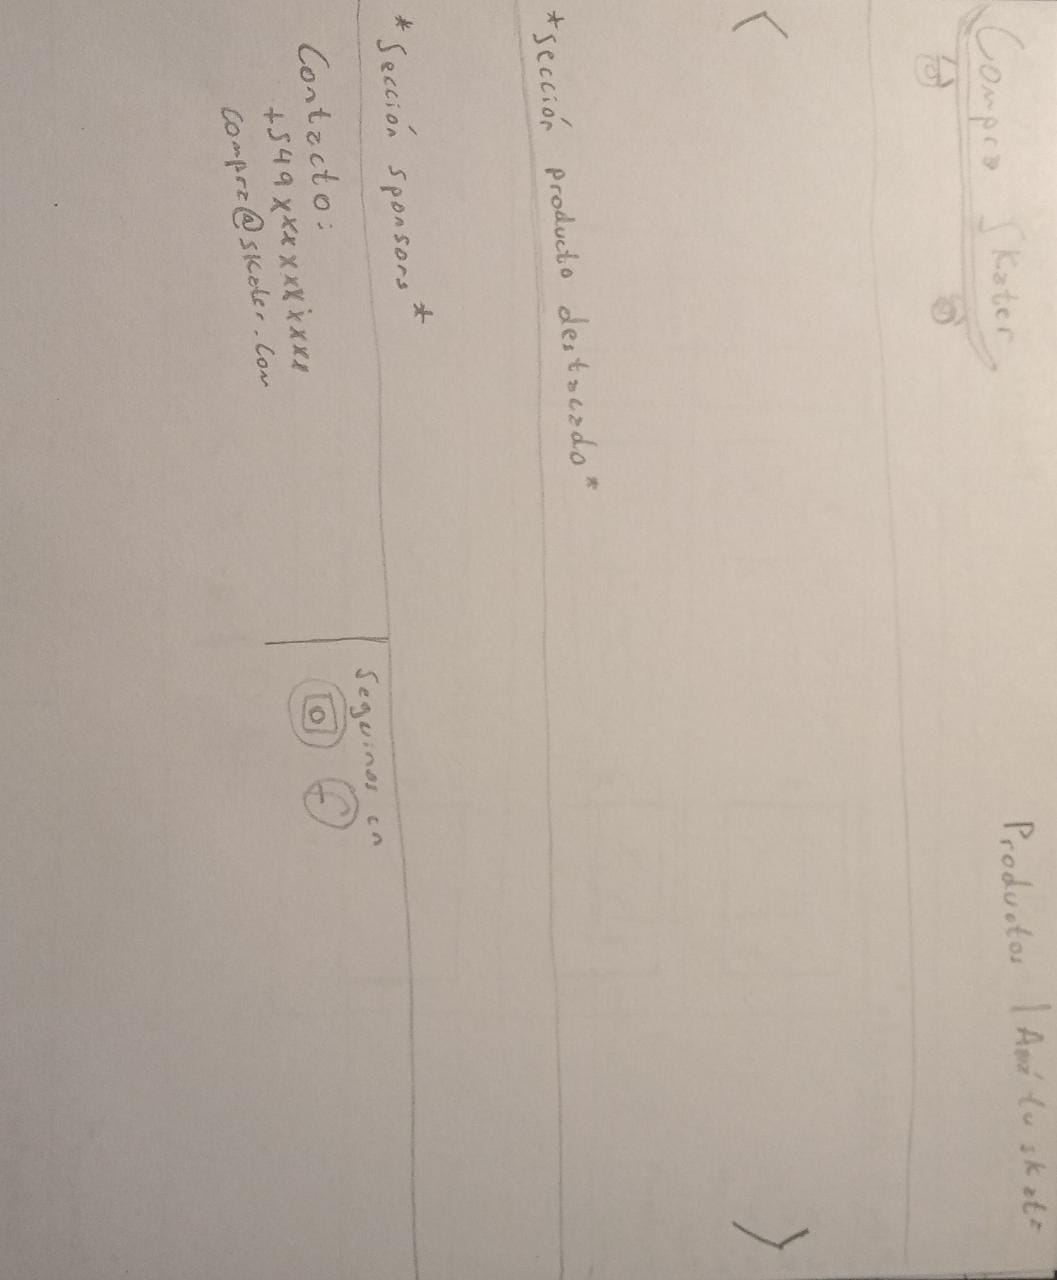 Compra Skater
Productos | Amá tu skate
*sección producto destacado*
*Sección sponsors*
Contacto:
+549xxxxxxxxxx
compra@skater.com
Seguinos en